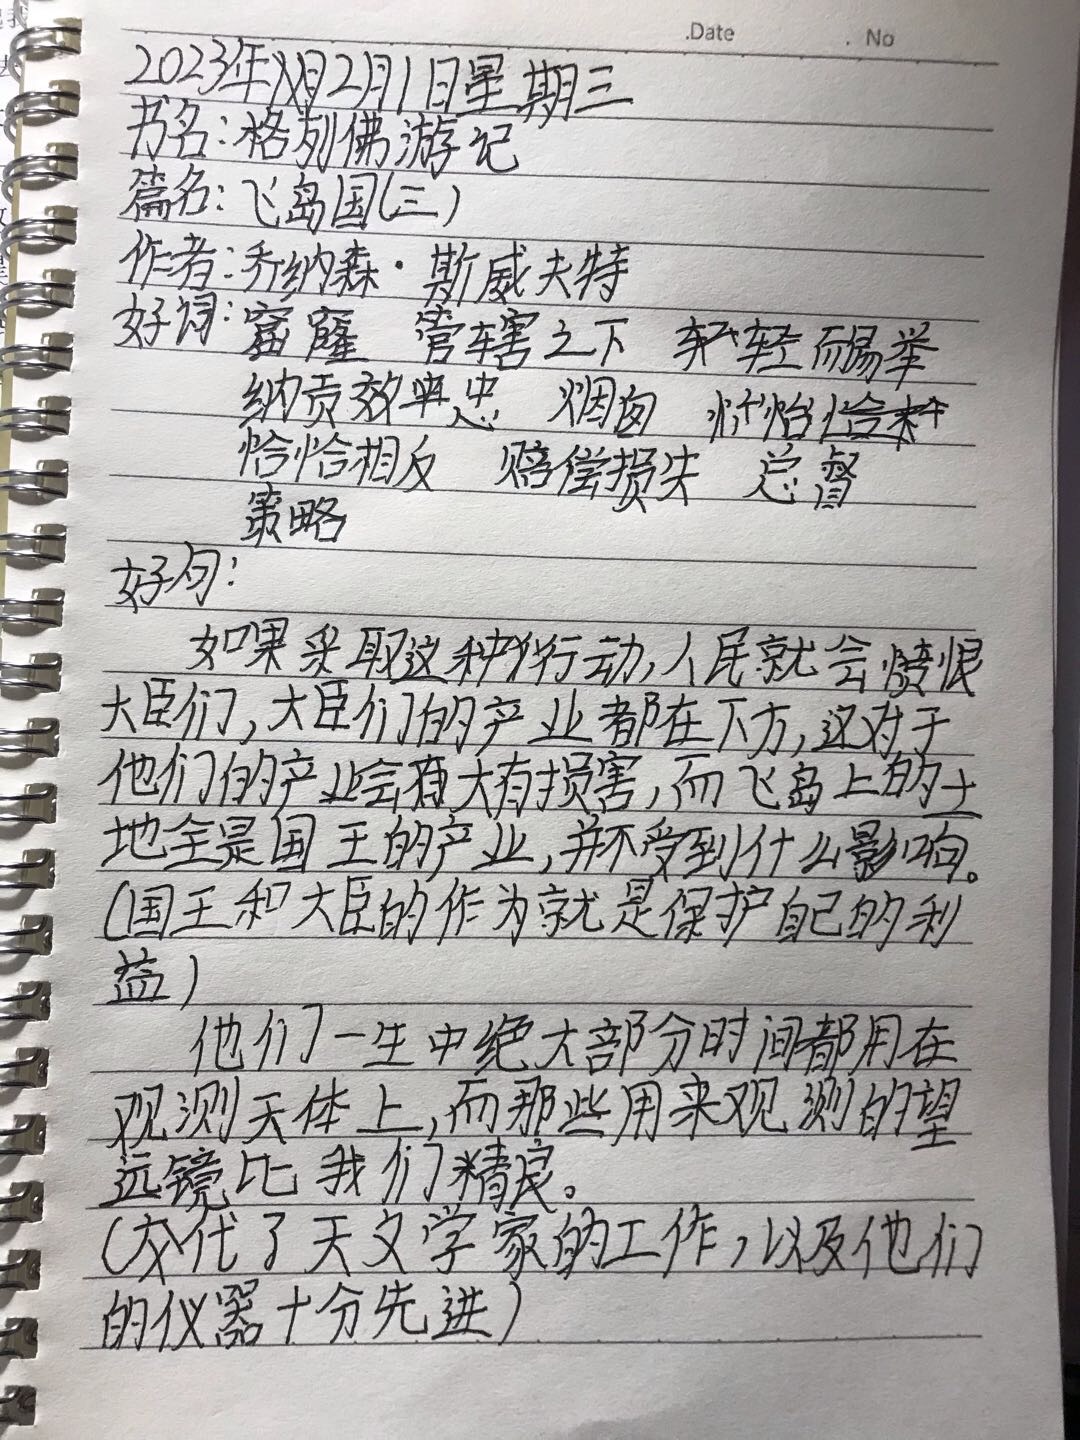 .Date . No
2023年2月1日星期三
书名:格列佛游记
篇名:飞岛国(三)
作者:乔纳森·斯威夫特
好词:窟窿 管辖之下 轻而易举
纳贡效忠 烟囱
恰恰相反 赔偿损失 总督
策略
好句:
如果采取这种行动,人民就会愤恨
大臣们,大臣们的产业都在下方,这对于
他们的产业会有大有损害,而飞岛上的土
地全是国王的产业,并不受到什么影响。
(国王和大臣的作为就是保护自己的利
益)
他们一生中绝大部分时间都用在
观测天体上,而那些用来观测的望
远镜比我们精良。
(交代了天文学家的工作,以及他们
的仪器十分先进)